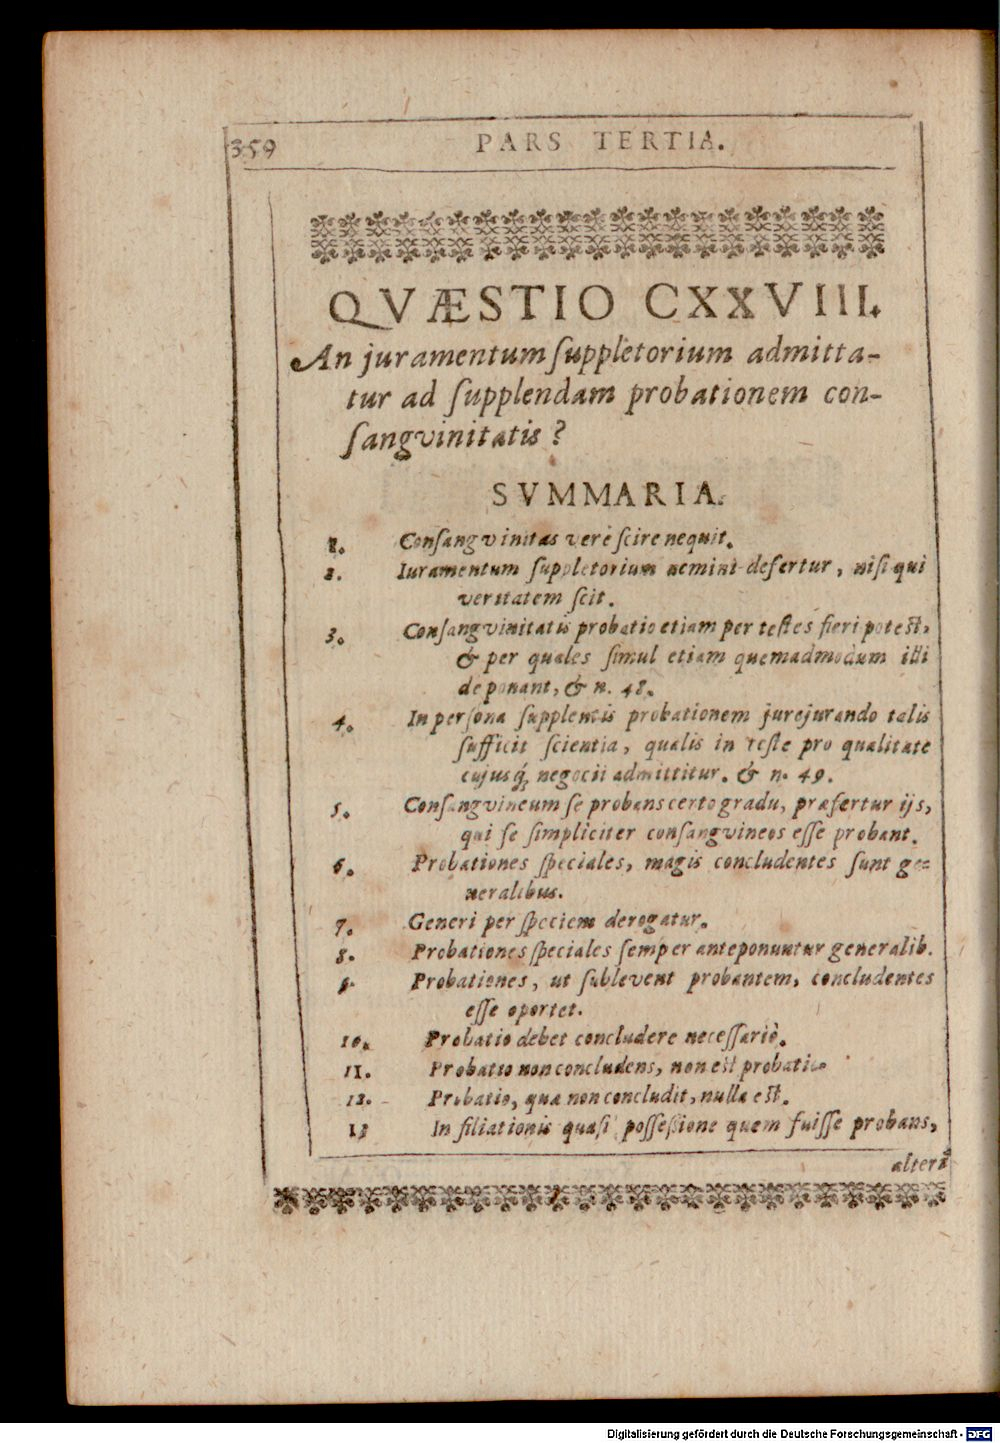 359 PARS TERTIA.
QVÆSTIO CXXVIII.
An juramentum ſuppletorium admitta-
tur ad ſupplendam probationem con-
ſangvinitatis?
SVMMARIA.
1. Conſangvinitas verè ſcire nequit.
2. Iuramentum ſuppletorium nemini defertur, niſi qui
veritatem ſcit.
3. Conſangvinitatis probatio etiam per teſtes fieri poteſt,
& per quales ſimul etiam quemadmodum illi
deponant, & n. 48.
4. In perſona ſupplentis probationem jurejurando talis
ſufficit ſcientia, qualis in teſte pro qualitate
cujusq́; negocii admittitur. & n. 49.
5. Conſangvineum ſe probans certo gradu, præfertur ijs,
qui ſe ſimpliciter conſangvineos eſſe probant.
6. Probationes ſpeciales, magis concludentes ſunt ge-
neralibus.
7. Generi per ſpeciem derogatur.
8. Probationes ſpeciales ſemper anteponuntur generalib.
9. Probationes, ut ſublevent probantem, concludentes
eſſe oportet.
10. Probatio debet concludere neceſſariò.
11. Probatio non concludens, non eſt probatio
12. Probatio, quæ non concludit, nulla eſt.
13 In filiationis quaſi poſſeßione quem fuiſſe probans,
alterã
Digitalisierung gefördert durch die Deutsche Forschungsgemeinschaft - DFG